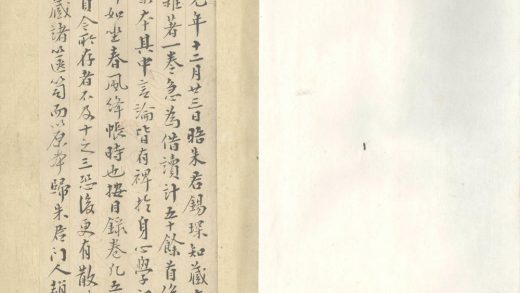 元年十二月廿三日晤朱君錫琛知藏
雜著一卷急為借讀計五十餘首
本其中言論皆有裨於身心學
如坐春風絳帳時也按目錄卷凡五
目今所存者不及十之三恐後更有散
藏諸篋笥而以原本歸朱君門人趙